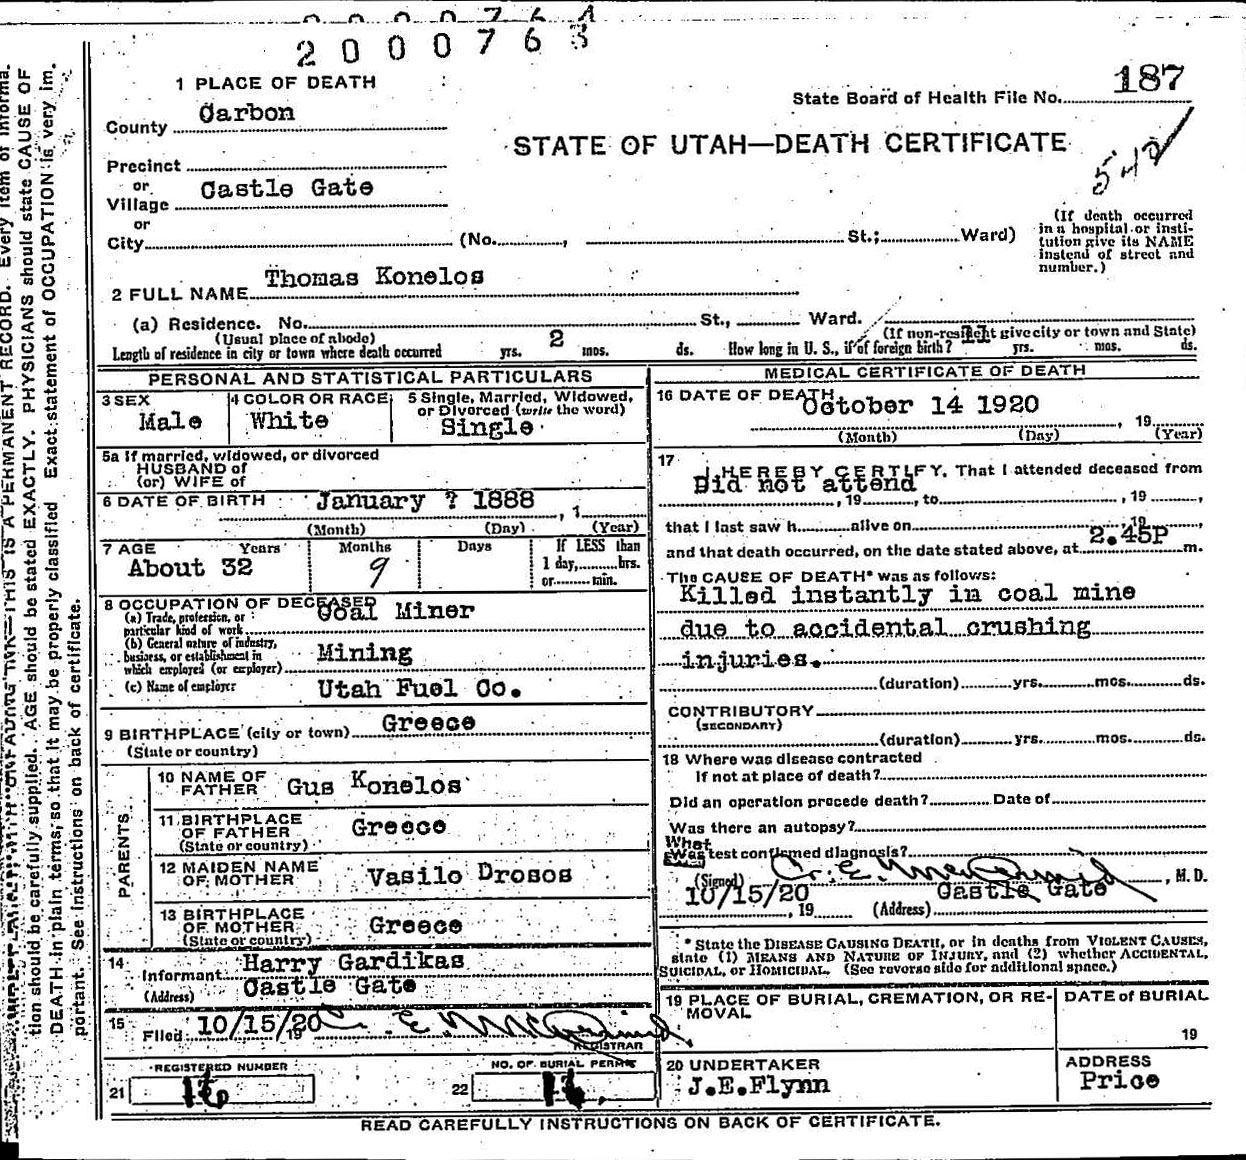 2000764
2000763
1 PLACE OF DEATH
County Carbon
State Board of Health File No. 187
STATE OF UTAH—DEATH CERTIFICATE
Precinct
or
Village Castle Gate
or
City (No. , St.; Ward)
(If death occurred
in a hospital or insti-
tution give its NAME
instead of street and
number.)
2 FULL NAME Thomas Konelos
(a) Residence. No. St., Ward.
(Usual place of abode) (If non-resident give city or town and State)
Length of residence in city or town where death occurred yrs. 2 mos. ds. How long in U. S., if of foreign birth? yrs. mos. ds.
PERSONAL AND STATISTICAL PARTICULARS
3 SEX
Male
4 COLOR OR RACE
White
5 Single, Married, Widowed,
or Divorced (write the word)
Single
5a If married, widowed, or divorced
HUSBAND of
(or) WIFE of
6 DATE OF BIRTH January ? 1888 , 1
(Month) (Day) (Year)
7 AGE Years Months Days If LESS than
About 32 9 1 day, hrs.
or min.
8 OCCUPATION OF DECEASED
(a) Trade, profession, or
particular kind of work Coal Miner
(b) General nature of industry,
business, or establishment in
which employed (or employer) Mining
(c) Name of employer Utah Fuel Co.
9 BIRTHPLACE (city or town) Greece
(State or country)
PARENTS
10 NAME OF
FATHER Gus Konelos
11 BIRTHPLACE
OF FATHER Greece
(State or country)
12 MAIDEN NAME
OF MOTHER Vasilo Drosos
13 BIRTHPLACE
OF MOTHER Greece
(State or country)
14
Informant Harry Gardikas
(Address) Castle Gate
15
Filed 10/15/20 19
REGISTRAR
REGISTERED NUMBER
21
NO. OF BURIAL PERMIT
22
MEDICAL CERTIFICATE OF DEATH
16 DATE OF DEATH
October 14 1920 , 19
(Month) (Day) (Year)
17
I HEREBY CERTIFY, That I attended deceased from
Did not attend , 19 , to , 19 ,
that I last saw h alive on , 19 ,
and that death occurred, on the date stated above, at 2.45P m.
The CAUSE OF DEATH* was as follows:
Killed instantly in coal mine
due to accidental crushing
injuries.
(duration) yrs. mos. ds.
CONTRIBUTORY
(SECONDARY)
(duration) yrs. mos. ds.
18 Where was disease contracted
If not at place of death?
Did an operation precede death? Date of
Was there an autopsy?
What
test confirmed diagnosis?
(Signed) , M.D.
10/15/20 , 19 (Address) Castle Gate
* State the DISEASE CAUSING DEATH, or in deaths from VIOLENT CAUSES,
state (1) MEANS AND NATURE OF INJURY, and (2) whether ACCIDENTAL,
SUICIDAL, or HOMICIDAL. (See reverse side for additional space.)
19 PLACE OF BURIAL, CREMATION, OR RE-
MOVAL
DATE of BURIAL
19
20 UNDERTAKER
J.E.Flynn
ADDRESS
Price
READ CAREFULLY INSTRUCTIONS ON BACK OF CERTIFICATE.
THIS IS A PERMANENT RECORD. Every item of informa-
tion should be carefully supplied. AGE should be stated EXACTLY. PHYSICIANS should state CAUSE OF
DEATH in plain terms, so that it may be properly classified. Exact statement of OCCUPATION is very im-
portant. See instructions on back of certificate.